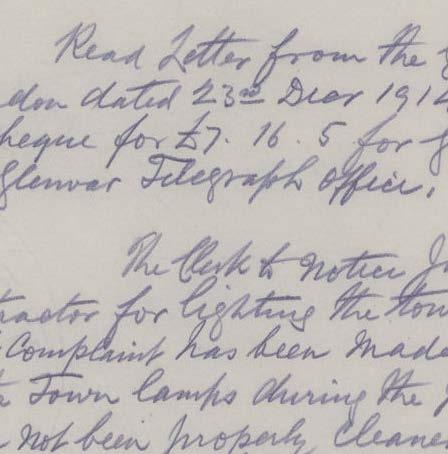 Read Letter from the
don dated 23rd Decr 191
heque for £7. 16. 5 for
glenvar Telegraph Office.
The Clerk to notice
tractor for lighting the tow
Complaint has been made
Town lamps during the
not been properly cleane